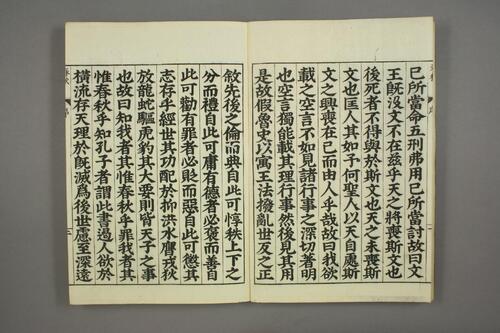 己所當命五刑弗用己所當討故曰文
王既沒文不在茲乎天之將喪斯文也
後死者不得與於斯文也天之未喪斯
文也匡人其如予何聖人以天自處斯
文之興喪在己而由人乎哉故曰我欲
載之空言不如見諸行事之深切著明
也空言獨能載其理行事然後見其用
是故假魯史以寓王法撥亂世反之正
敘先後之倫而典自此可惇秩上下之
分而禮自此可庸有德者必褒而善自
此可勸有罪者必貶而惡自此可懲其
志存乎經世其功配於抑洪水膺戎狄
放龍蛇驅虎豹其大要則皆天子之事
也故曰知我者其惟春秋乎罪我者其
惟春秋乎知孔子者謂此書遏人欲於
橫流存天理於既滅爲後世慮至深遠